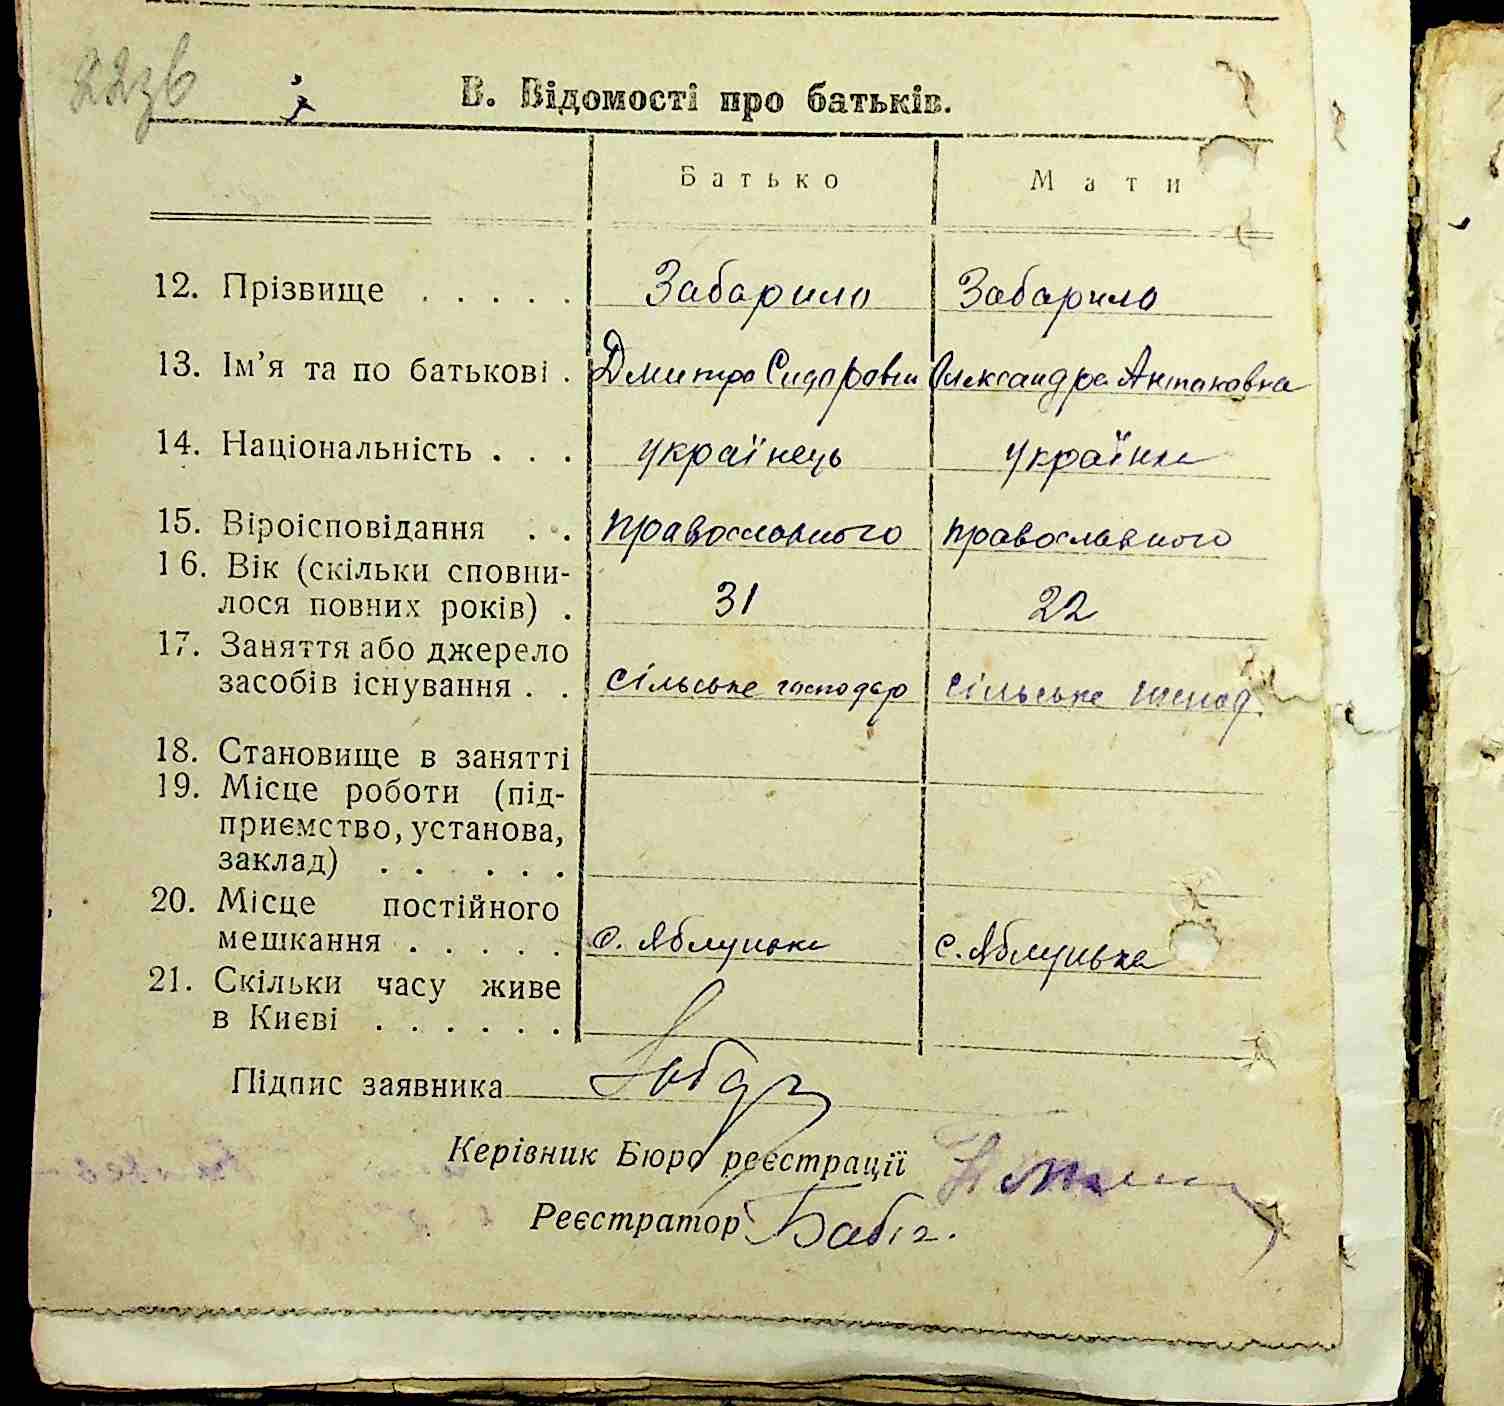 22зв
В. Відомості про батьків.
Батько Мати
12. Прізвище . . . . . Забарило Забарило
13. Ім’я та по батькові . Дмитро Сидорович Олександра Антоновна
14. Національність . . . українець українка
15. Віроісповідання . . православного православного
16. Вік (скільки сповни-
лося повних років) . 31 22
17. Заняття або джерело
засобів існування . . сільське господар сільське господ.
18. Становище в занятті
19. Місце роботи (під-
приємство, установа,
заклад) . . . . . .
20. Місце постійного
мешкання . . . . . с. Яблунька с. Яблунька
21. Скільки часу живе
в Києві . . . . . .
Підпис заявника
Керівник Бюро реєстрації
Реєстратор